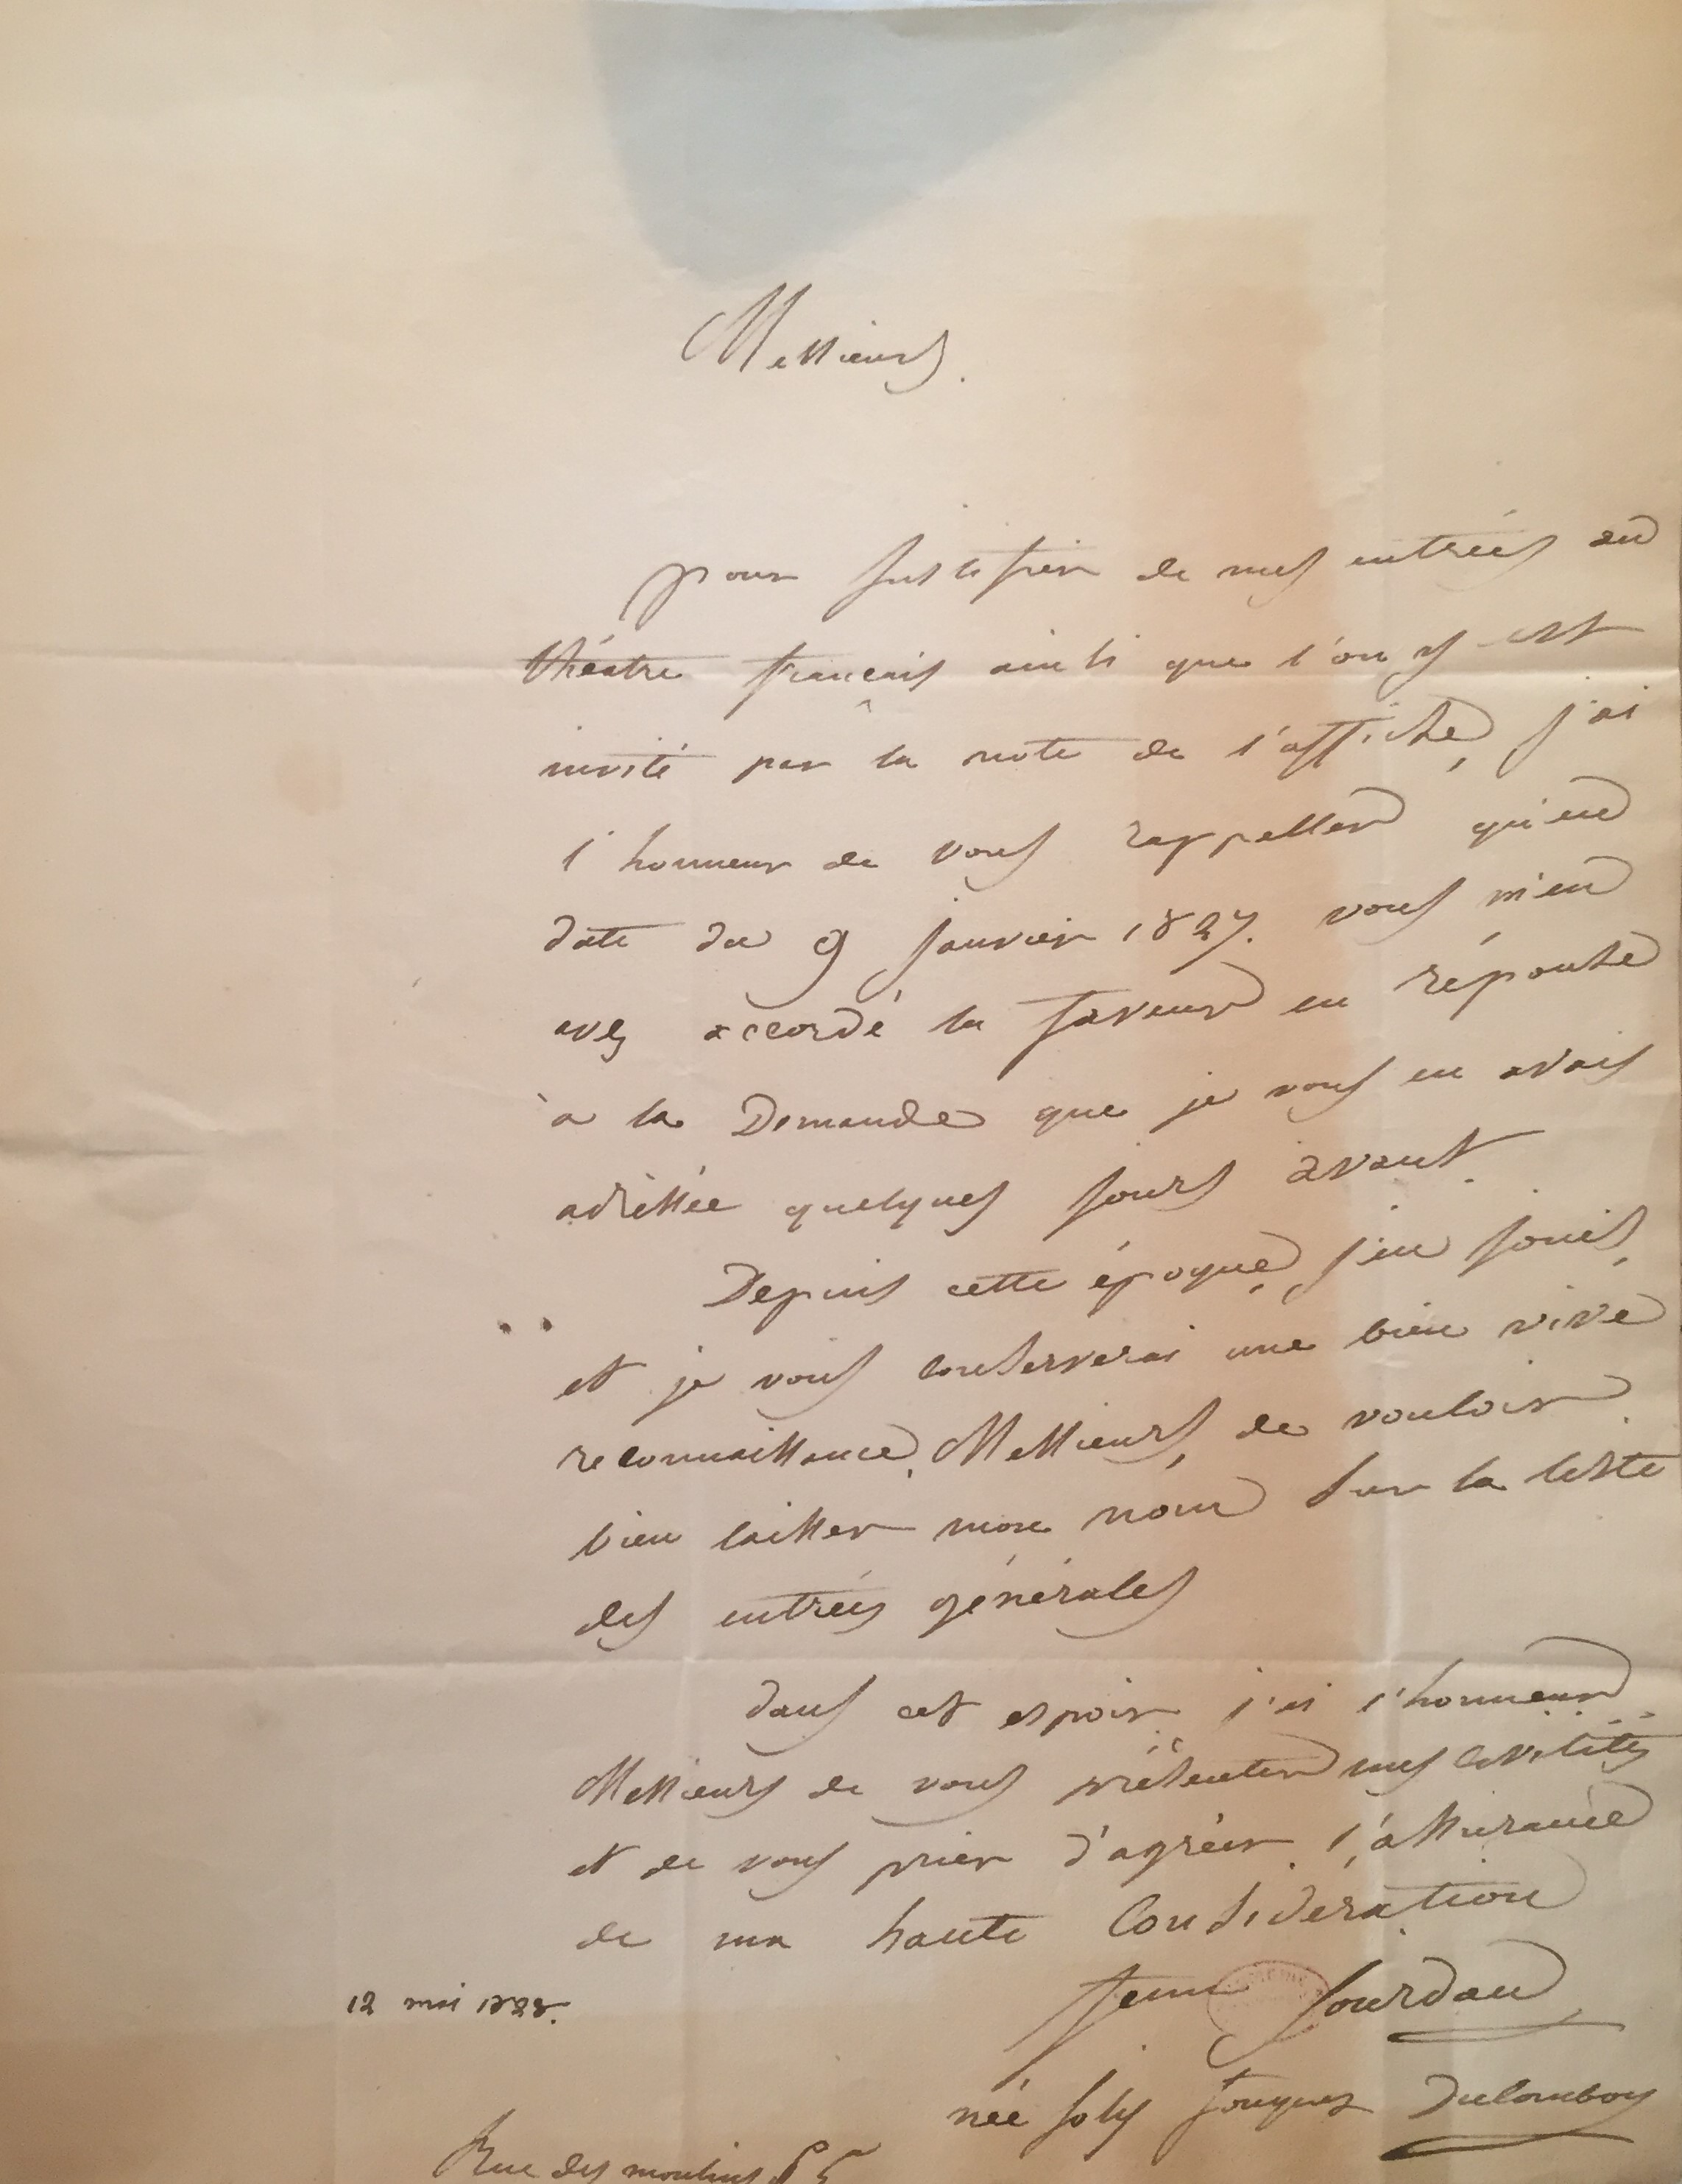 Messieurs.
pour justifier de mes entrées au
théatre français ainsi que l'on y est
invité par la note de l'affiche, j'ai
l'honneur de vous rappeller qu'en
date du 9 janvier 1827. vous m'en
avez accordé la faveur en réponse
à la Demande que je vous en avais
adressée quelques jours avant.
Depuis cette époque, j'en jouis,
et je vous conserverai une bien vive
reconnaissance, Messieurs, de vouloir
bien laisser mon nom sur la liste
des entrées générales
dans cet espoir j'ai l'honneur
Messieurs de vous présenter mes civilités
et de vous prier d'agréer l'assurance
de ma haute Considération
femme Jourdan
12 mai 1828.
née Joly
Rue des moulins